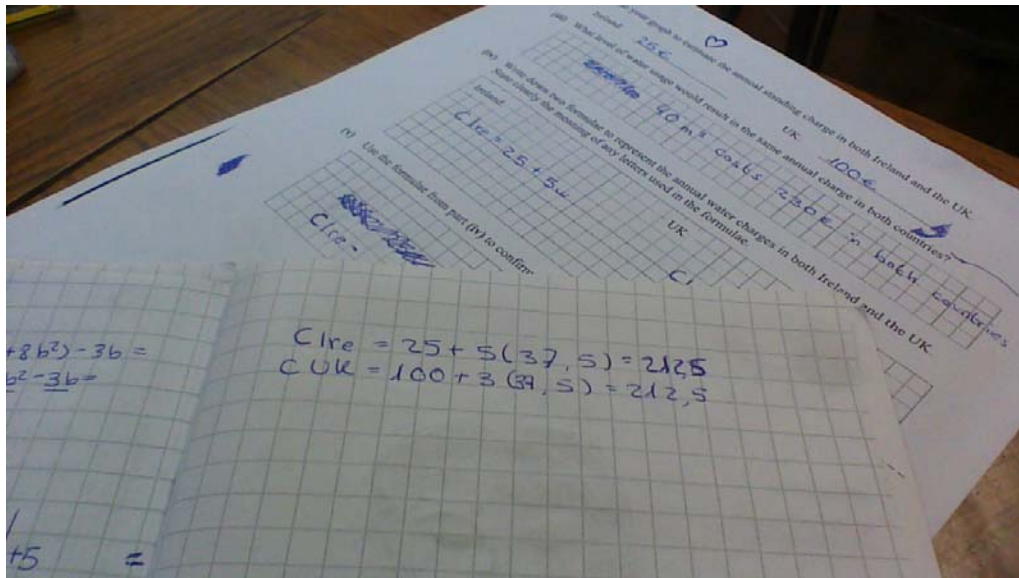 your graph to estimate the annual standing charge in both Ireland and the UK.
Ireland 25€ UK 100€
(iii) What level of water usage would result in the same annual charge in both countries?
40 m³ costs 230€ in both countries
(iv) Write down two formulae to represent the annual water charges in both Ireland and the UK
State clearly the meaning of any letters used in the formulae.
Ireland UK
CIre = 25 + 5w
(v) Use the formulae from part (iv) to confirm
CIre =
+8b²) - 3b =
b² - 3b =
+5 =
CIre = 25 + 5(37,5) = 212,5
CUK = 100 + 3(37,5) = 212,5